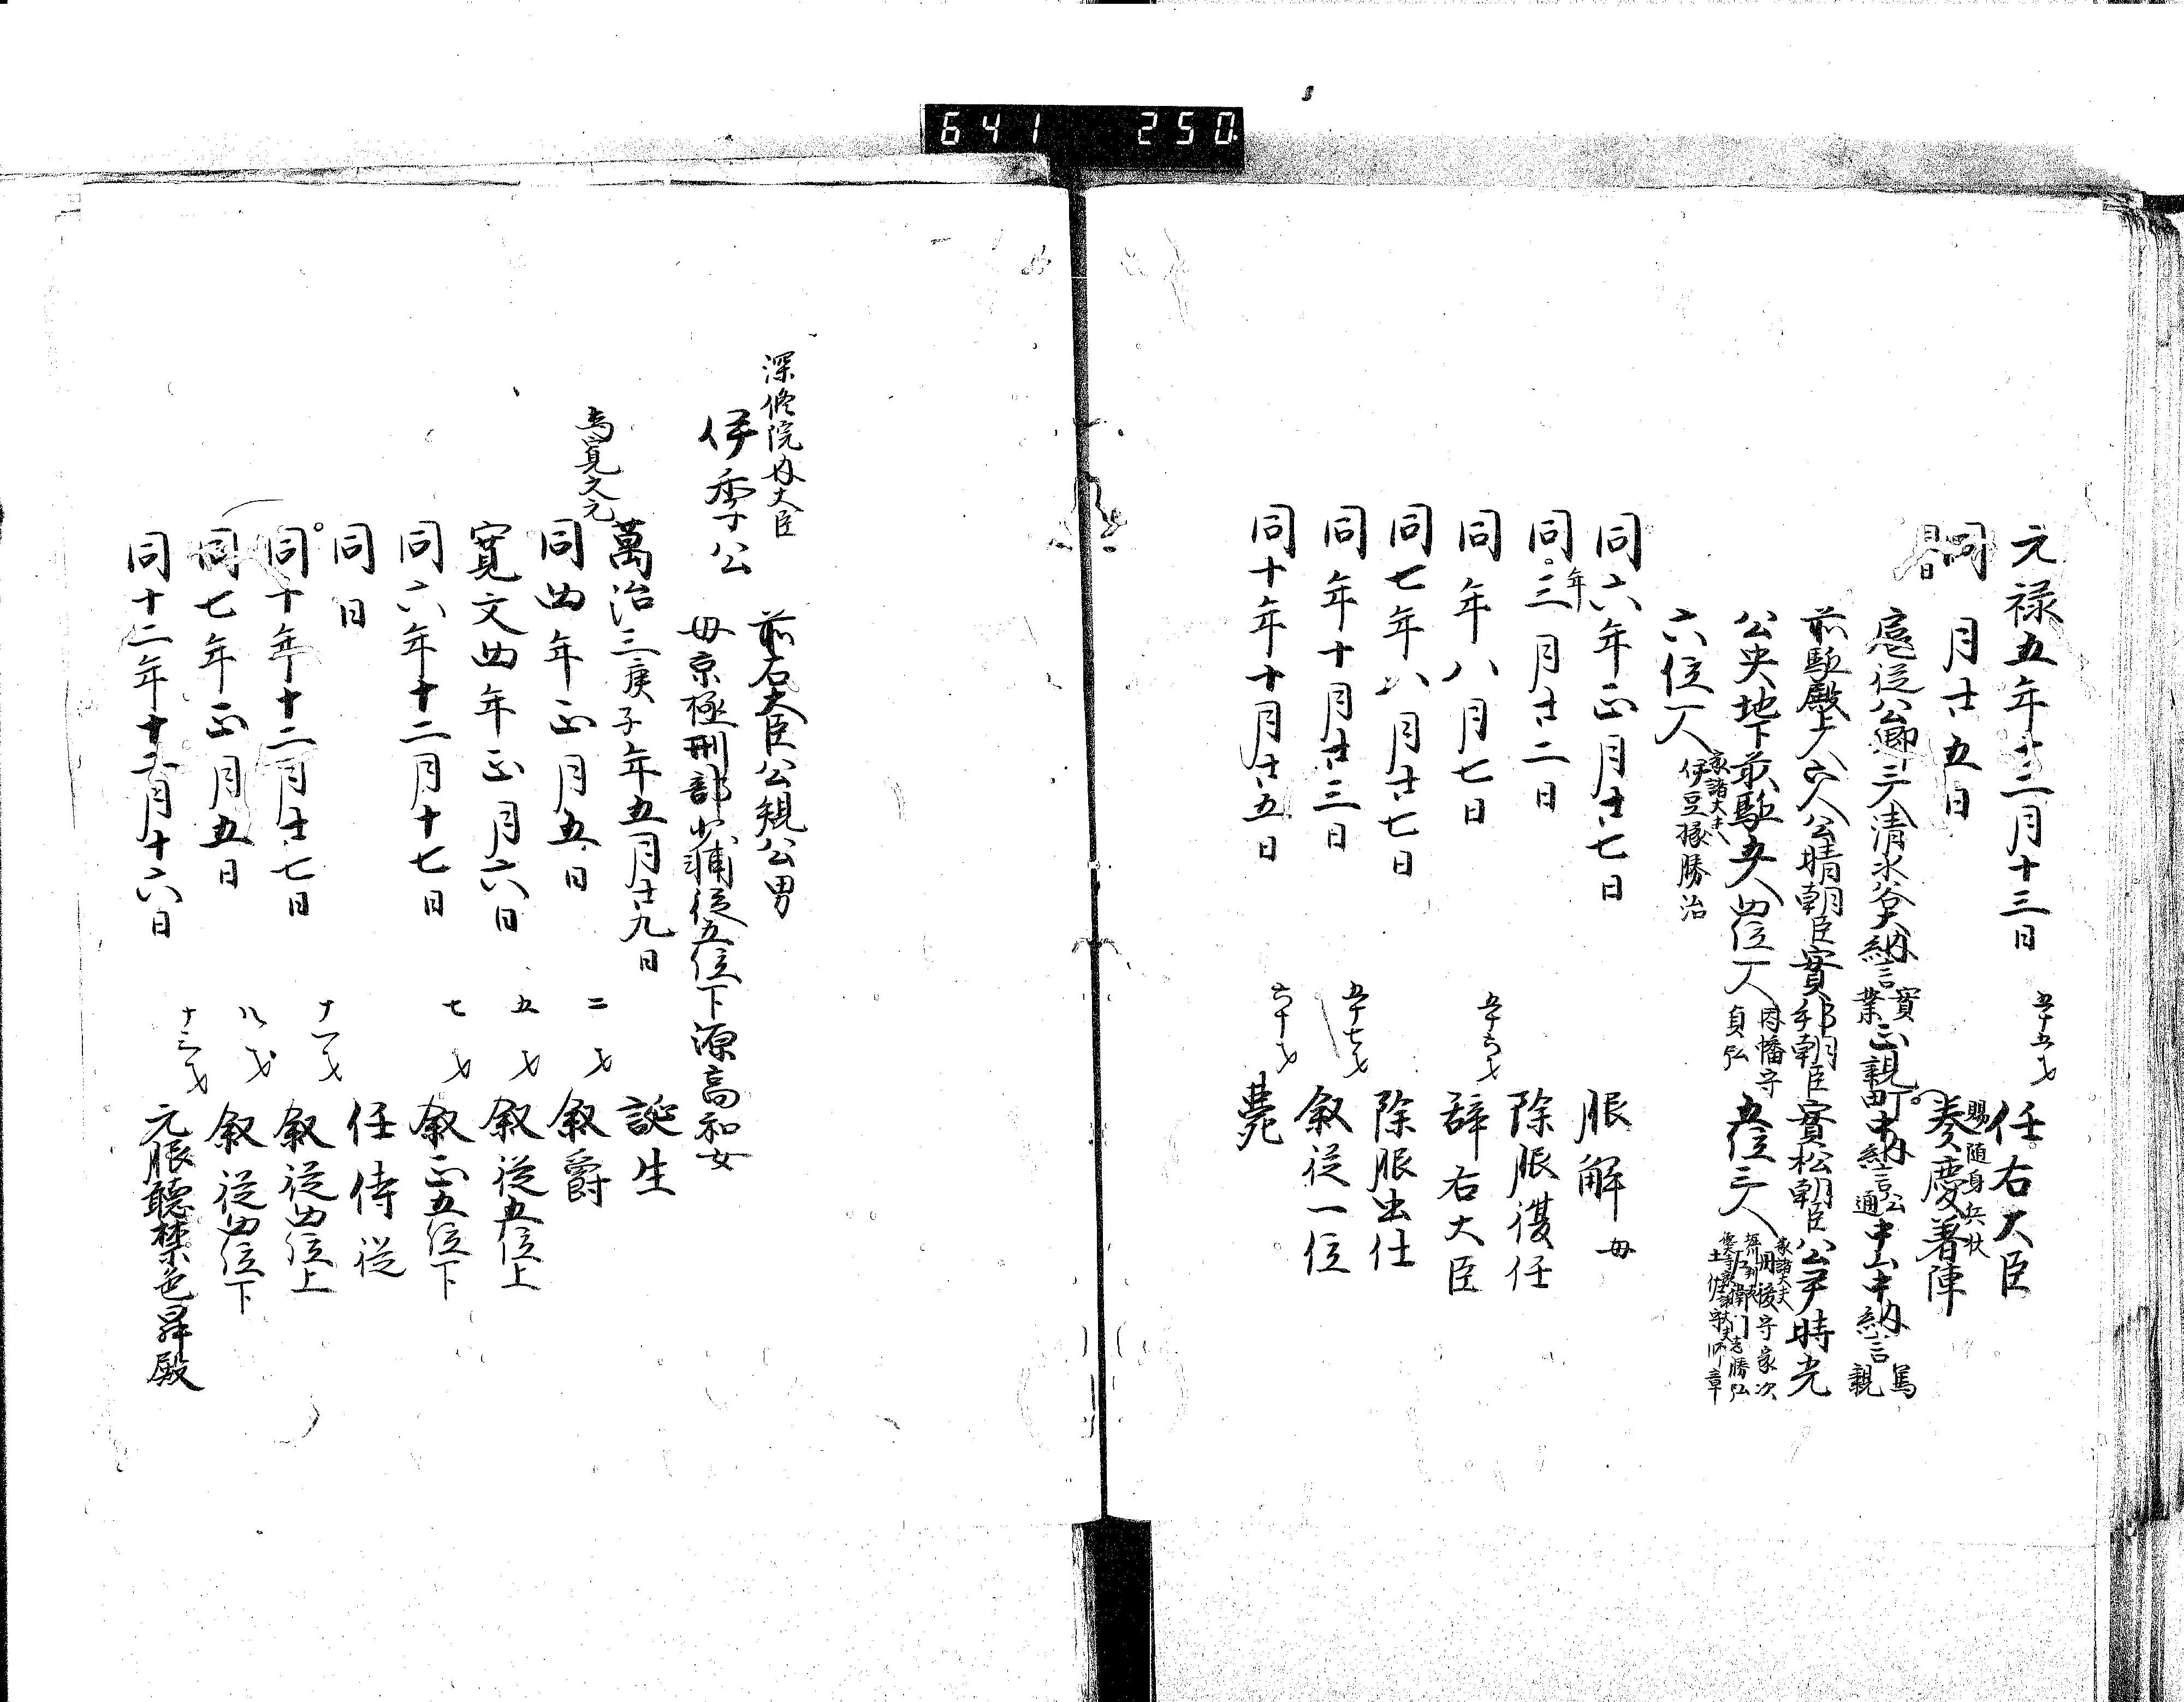 641 250
元禄五年十二月十三日 五十五才 任右大臣
同日
同月廿五日 賜随身兵状 奏慶着陣
扈従公卿三人清水谷大納言実業正親町中納言公通中山中納言篤親
前駈殿上人六人公晴朝臣實邦朝臣實松朝臣公尹時光
公央地下前駈五人四位一人因幡守貞弘五位三人家諸大夫丹後守家次
六位一人家諸大夫伊豆掾勝治
同六年正月廿七日 服解母
同年三月廿二日 除服復任
同年八月七日 五十六才 辞右大臣
同七年八月廿七日 除服出仕
同年十月廿三日 五十七才 叙従一位
同十年十月廿五日 六十才 薨
深修院内大臣
伊季公 前右大臣公規公男
母京極刑部少輔従五位下源高和女
萬治三庚子年五月廿九日 誕生
為寛文元
同四年正月五日 二才 叙爵
寛文四年正月六日 五才 叙従五位上
同六年十二月十七日 七才 叙正五位下
同日 任侍従
同十年十二月廿七日 十一才 叙従四位上
同七年正月五日 八才 叙従四位下
同十二年十二月十六日 十三才 元服聴禁色昇殿